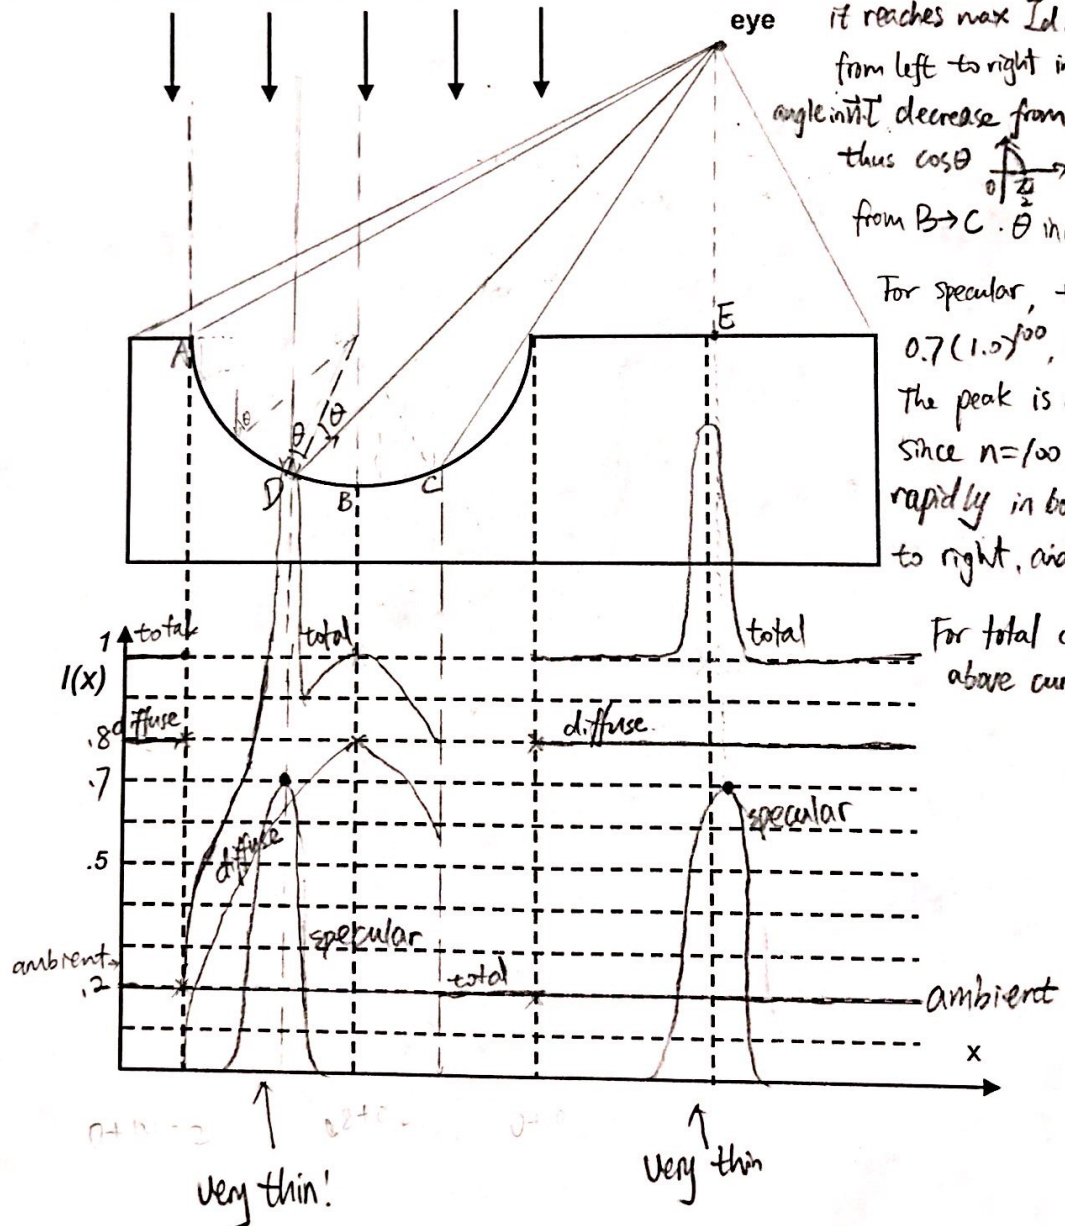 eye
it reaches max Id
from left to right
angle in n⃗·l⃗ decrease from
thus cosθ
0 π/2
from B→C . θ in
For specular,
0.7(1.0)^100,
The peak is
since n=100
rapidly in
to right, and
A
E
θ
θ
θ
D
B
C
1
total
total
total
For total
above
I(x)
diffuse
.8
diffuse.
.7
specular
diffuse
.5
specular
ambient
total
.2
ambient
x
very thin!
very thin